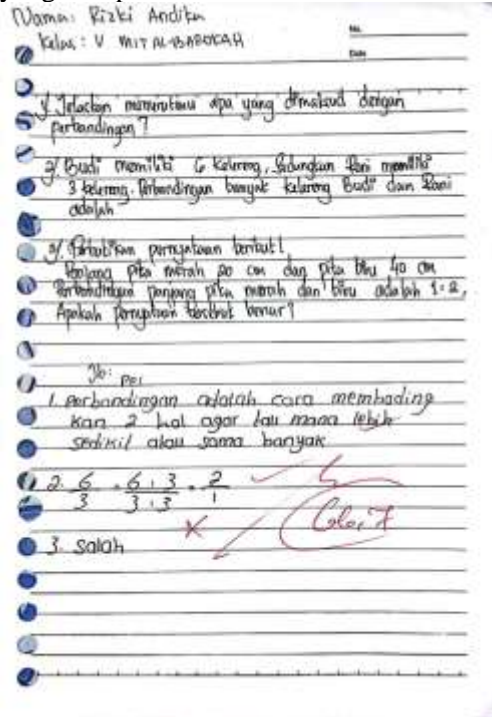 Nama: Rizki Andika
Kelas: V MIT AL-BAROKAH
No.
Date
1/ Jelaskan menurutmu apa yang dimaksud dengan
perbandingan?
2/ Budi memiliki 6 kelereng, sedangkan Rani memiliki
3 kelereng. Perbandingan banyak kelereng Budi dan Rani
adalah
3/ Perhatikan pernyataan berikut!
Panjang pita merah 20 cm dan pita biru 40 cm
Perbandingan panjang pita merah dan biru adalah 1:2,
Apakah pernyataan tersebut benar?
Jb:
1. perbandingan adalah cara membading
kan 2 hal agar tau mana lebih
sedikit atau sama banyak
2. 6/3 = 6:3/3:3 = 2/1
3. Salah